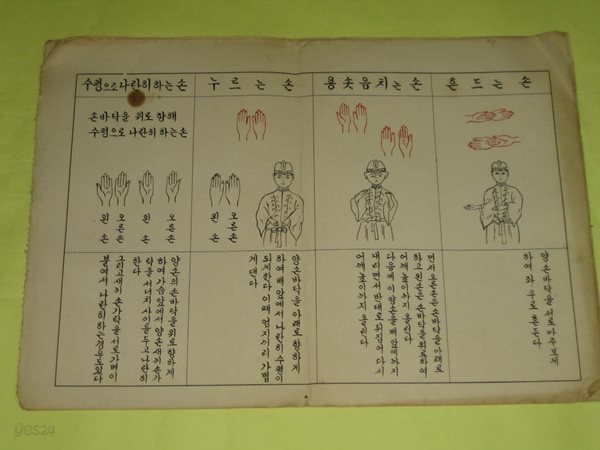 수평으로 나란히 하는 손
누르는 손
용솟음치는 손
흔드는 손
손바닥을 위로 향해
수평으로 나란히 하는 손
왼손
오른손
왼손
오른손
왼손
오른손
양손의 손바닥을 위로 향하게
하여 가슴앞에서 양손 새끼손가
락을 서너치 사이를 두고 나란히
한다
그리고 새끼손가락을 서로 가벼이
붙여서 나란히 하는 경우도 있다
양손바닥을 아래로 향하게
하여 배앞에서 나란히 수평이
되게한다 이때 엄지끼리 가볍
게 댄다
먼저 오른손은 손바닥을 아래로
하고 왼손은 손바닥을 위로하여
어깨높이까지 올린다
다음에 이 양손을 배 앞에까지
내리면서 반대로 뒤집어 다시
어깨높이까지 올린다
양 손바닥을 서로 마주보게
하여 좌우로 흔든다
yes24